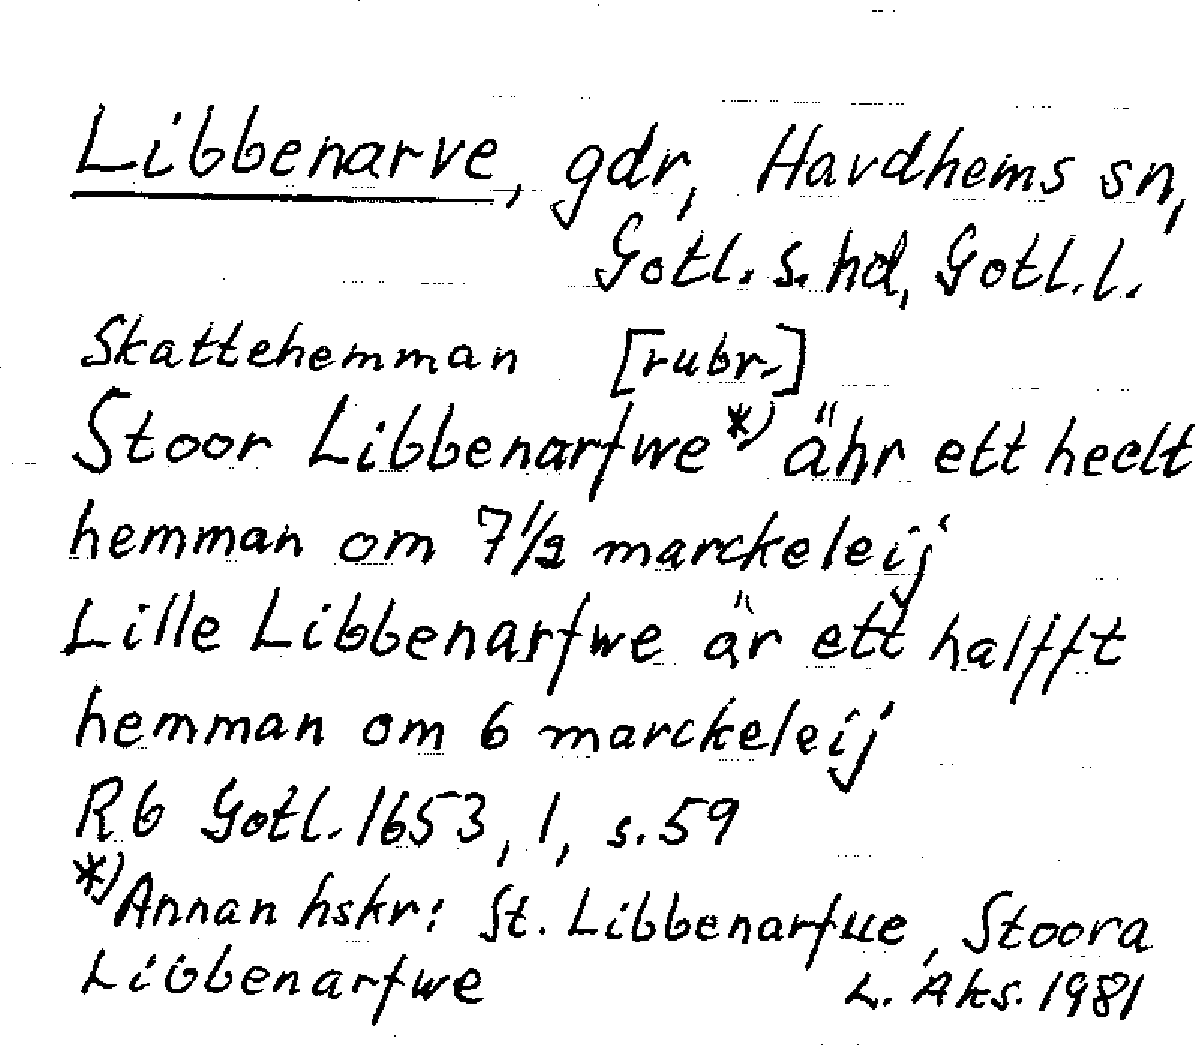 Libbenarve, gdr, Havdhems sn,
Gotl. s. hd, Gotl. l.
Skattehemman [rubr.]
Stoor Libbenarfwe*) ähr ett heelt
hemman om 7 1/2 marckeleij
Lille Libbenarfwe är ett halfft
hemman om 6 marckeleij
Rb Gotl. 1653, 1, s. 59
*) Annan hskr: St. Libbenarfue, Stoora
Libbenarfwe L. Aks. 1981